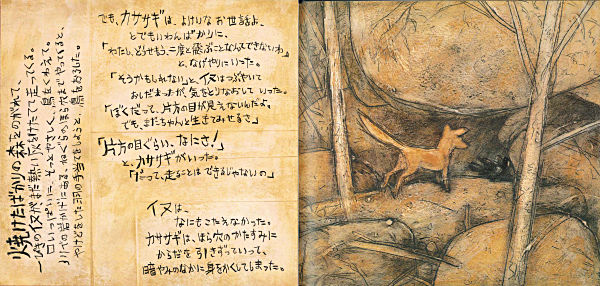 焼けたばかりの森をのがれて、
一ぴきの犬がまだ熱い灰をけたてて走ってくる。
口いっぱいに、そっとやさしく、鳥をくわえて。
川べの岩かげにある、ねぐらのほら穴までやってくると、
やけどをした羽の手当てをしようと、鳥をおろした。
でも、カササギは、よけいなお世話よ、
とでもいわんばかりに、
「わたし、どうせもう、二度と飛ぶことなんてできないわ」
と、なげやりにいった。
「そうかもしれない」と、イヌはつぶやいて
おしだまったが、気をとりなおしていった。
「ぼくだって、片方の目が見えないんだよ。
でも、まだちゃんと生きてみせるさ」
「片方の目ぐらい、なにさ！」
と、カササギがいった。
「だって、走ることはできるじゃないの」
イヌは、
なにもこたえなかった。
カササギは、ほら穴のかたすみに
からだを引きずっていって、
暗やみのなかに身をかくしてしまった。